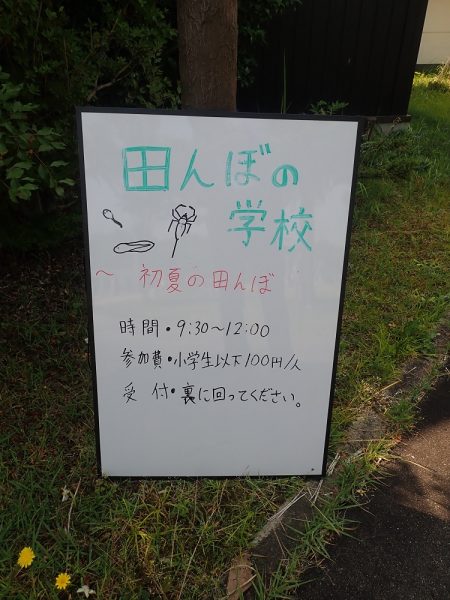 田んぼの
学校
～ 初夏の田んぼ
時間・9:30～12:00
参加費・小学生以下100円/人
受付・裏に回ってください。